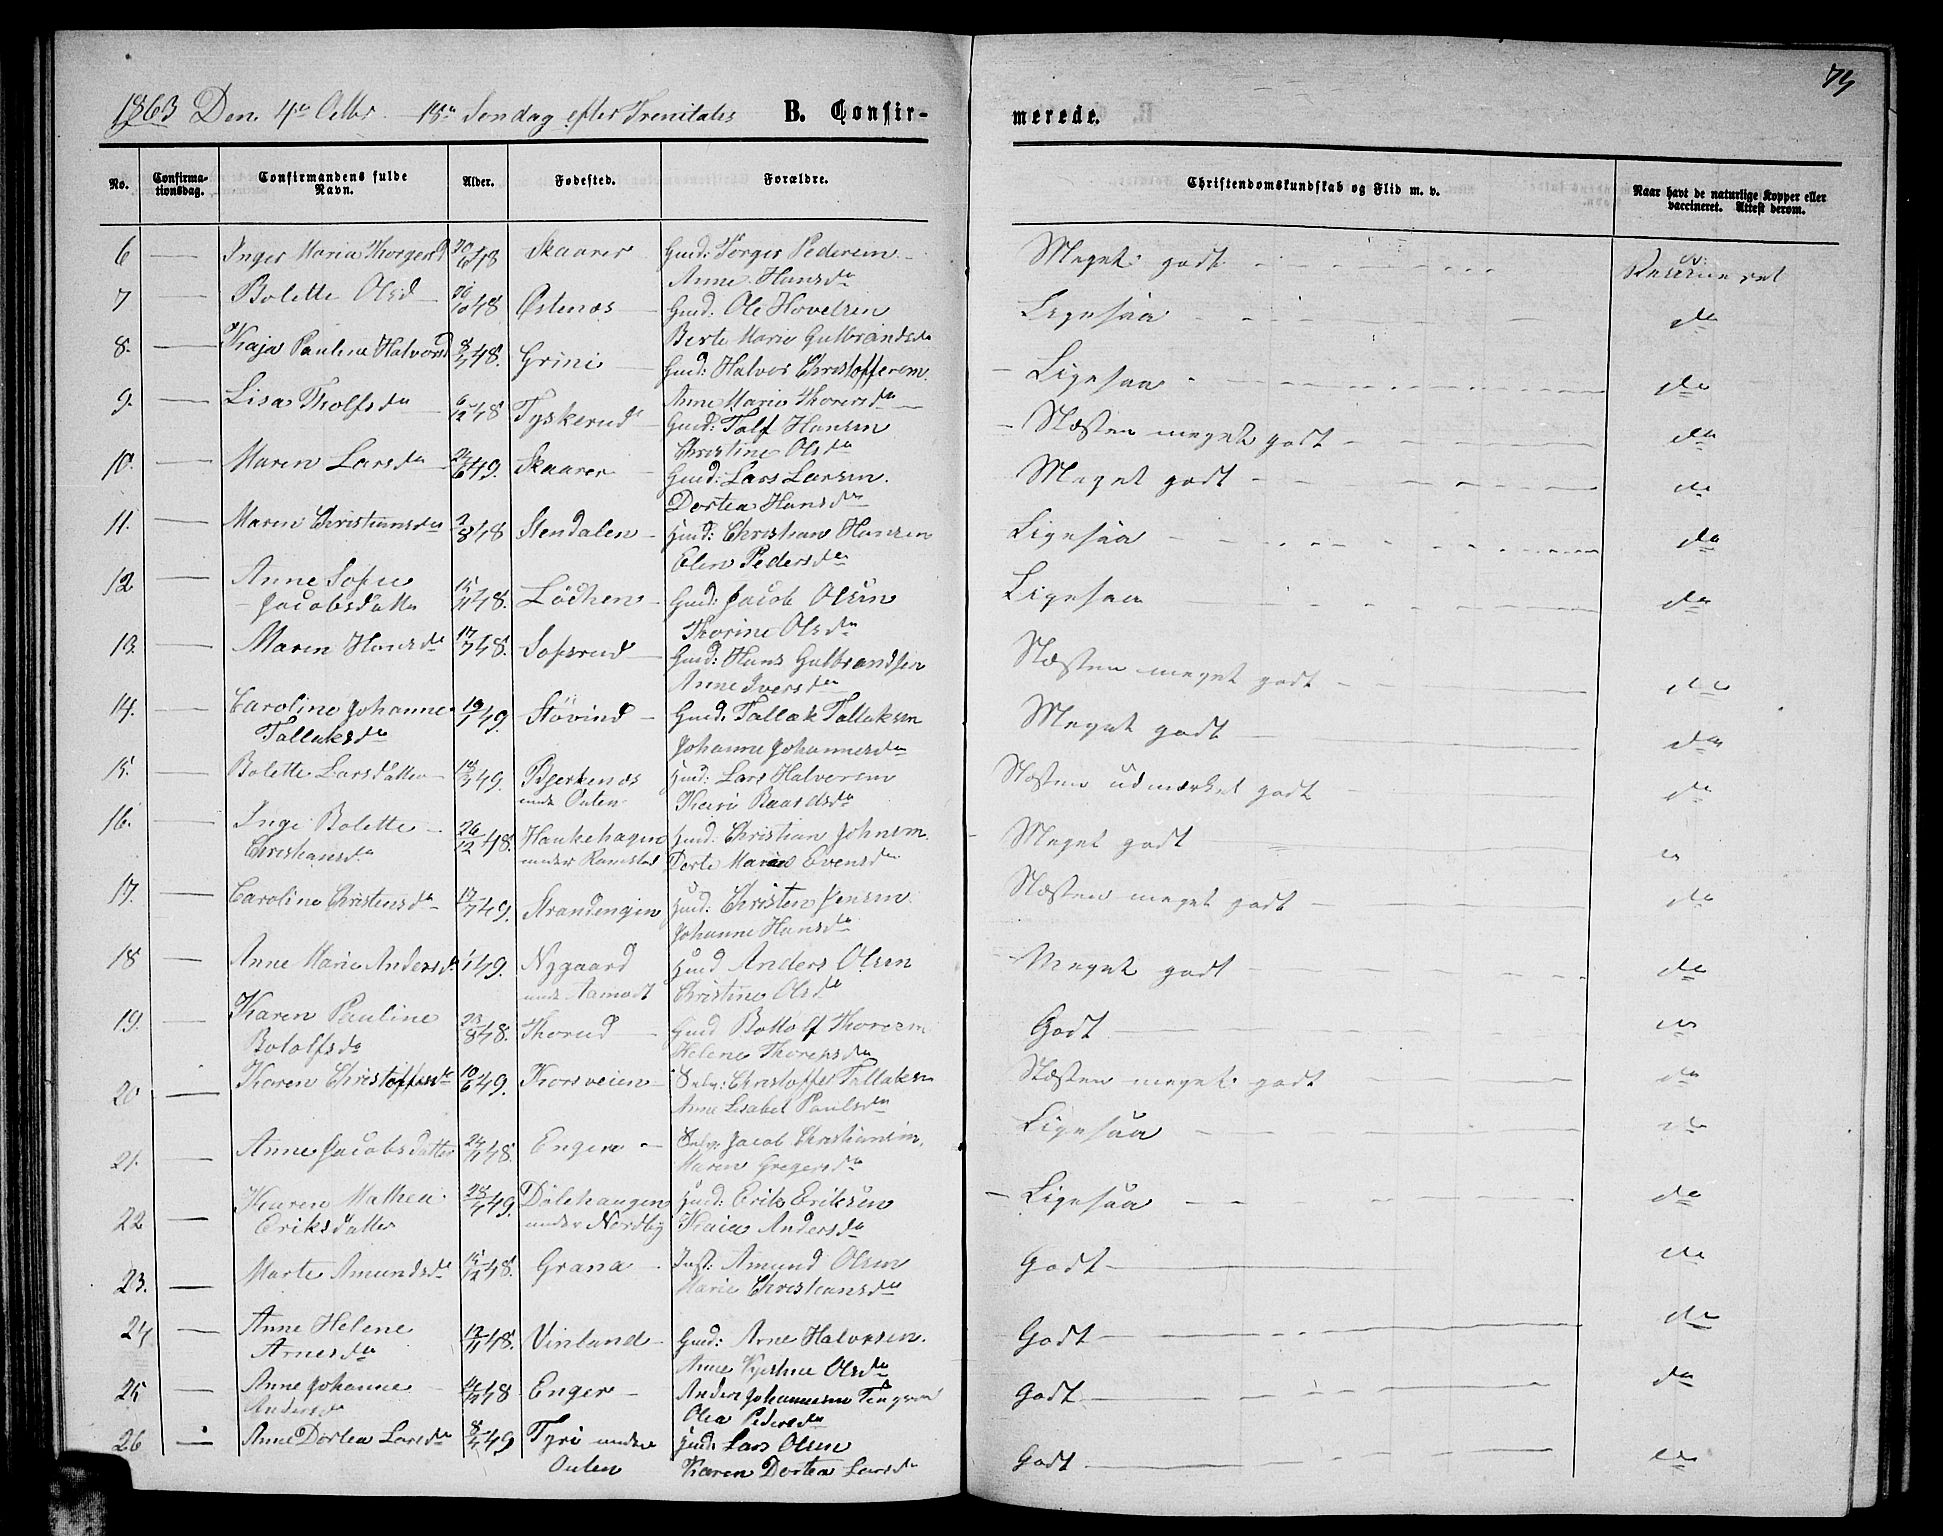 1863 Den 4de Octbr 18de Søndag efter Trenitatis B. Confir-
merede.
No. Confirma-tionsdag. Confirmandens fulde Navn. Alder. Fødested. Forældre. Christendomskundskab og Flid m. v. Naar havt de naturlige Kopper eller vaccineret. Attest derom.
6 — Inger Maria Thorgersd 48 Skaarer Gmd: Torger Pedersen
Anne Hansda Meget godt
7 — Bolette Olsd 48 Østenæs Gmd: Ole Hovelsen
Berte Marie Gulbrandsda Ligesaa da
8. — Kaja Pauline Halvorsd 48. Grini Gmd: Halvor Christoffersen
Anne Marie Thorersda Ligesaa da
9. — Lisa Tholfsda 48 Tyskerud Gmd: Tolf Hansen
Christine Olsda Næsten meget godt da
10. — Maren Larsda 49. Skaarer Gmd: Lars Larsen.
Dortea Hansda Meget godt da
11. — Maren Christiansda 2/8 48 Stendalen Gmd: Christian Hansen
Elen Pedersda Ligesaa da
12 — Anne Sofie
Jacobsdatter 15/11 48. Løchen Gmd: Jacob Olsen
Thorine Olsda Ligesaa da
13. — Maren Hansda 17/7 48. Sofsrud Gmd: Hans Gulbrandsen
Anne Iversda Næsten meget godt da
14. — Caroline Johanne
Tallaksda 19/1 49. Støvind Gmd. Tallak Tallaksen
Johanne Johannesda Meget godt da
15. — Bolette Larsdatter 49. Bjerkenæs
unde Outen Gmd: Lars Halvorsen
Kari Baardsda Næsten udmærket godt da
16. — Inge Bolette
Christiansda 26/12 48. Haukehagen
under Ramstad Gmd: Christian Johnsen
Dorte Maria Evensda Meget godt
17. — Caroline Christensda 17/7 49. Strandengen Gmd: Christen Jensen
Johanne Hansda Næsten meget godt da
18 — Anne Marie Andersd. 49. Nygaard
unde Aamodt Gmd Anders Olsen
Christine Olsda Meget godt da
19. — Karen Pauline
Botolfsda 23/8 48. Thorud Gmd Bottolf Thoresen
Helene Thorersda Godt
20 — Karen Christoffersda 10/6 49. Korsveien Selv: Christoffer Tallaksn
Anne Lisabet Paulsda Næsten meget godt da
21. — Anne Jacobsdatter 24/11 48. Enger Selv. Jacob Christiansen.
Maren Gregersda Ligesaa da
22 — Karen Mathea
Eriksdatter 49. Dølehaugen
under Nordby Gmd: Erik Eriksen
Kaia Andersda Ligesaa da
23. — Marte Amundsda 15/12 48. Grana Inst: Amund Olsen
Marie Christiansda Godt da
24 — Anne Helene
Arnesda 48. Vinland Gmd: Arne Halvorsen.
Anne Kjestine Olsda Godt da
25 — Anne Johanne
Andersda 48 Enger Anders Johannesen
Olea Pedersda Godt da
26 — Anne Dortea Larsda 49 Tyri under
Outen Gmd: Lars Olsen
Karen Dortea Larsda Godt